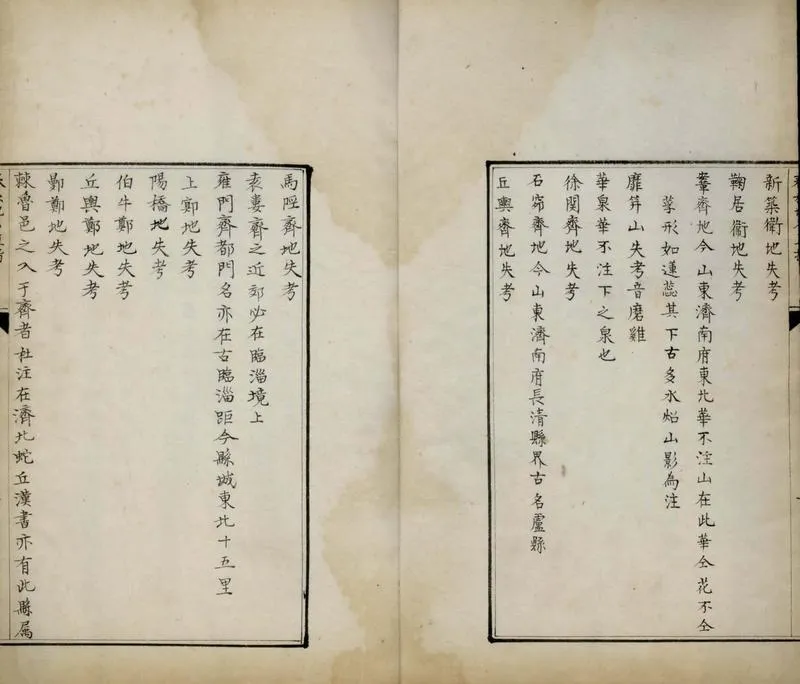 新築衛地失考
鞠居衛地失考
鞌齊地今山東濟南府東北華不注山在此華仝花不仝
萼形如蓮蕊其下古多水如山影為注
靡筓山失考音磨雞
華泉華不注下之泉也
徐関齊地失考
石窌齊地今山東濟南府長清縣界古名盧縣
丘輿齊地失考
馬陘齊地失考
袁婁齊之近郊必在臨淄境上
雍門齊都門名亦在古臨淄距今縣城東北十五里
上鄍地失考
陽橋地失考
伯牛鄭地失考
丘輿鄭地失考
鄤鄭地失考
棘魯邑之入于齊者杜注在濟北蛇丘漢書亦有此縣属